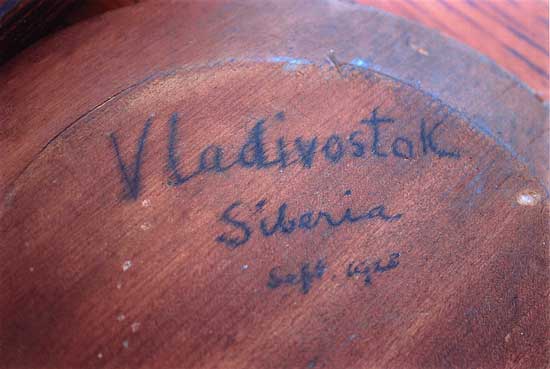 Vladivostok
Siberia
Sept. 1918